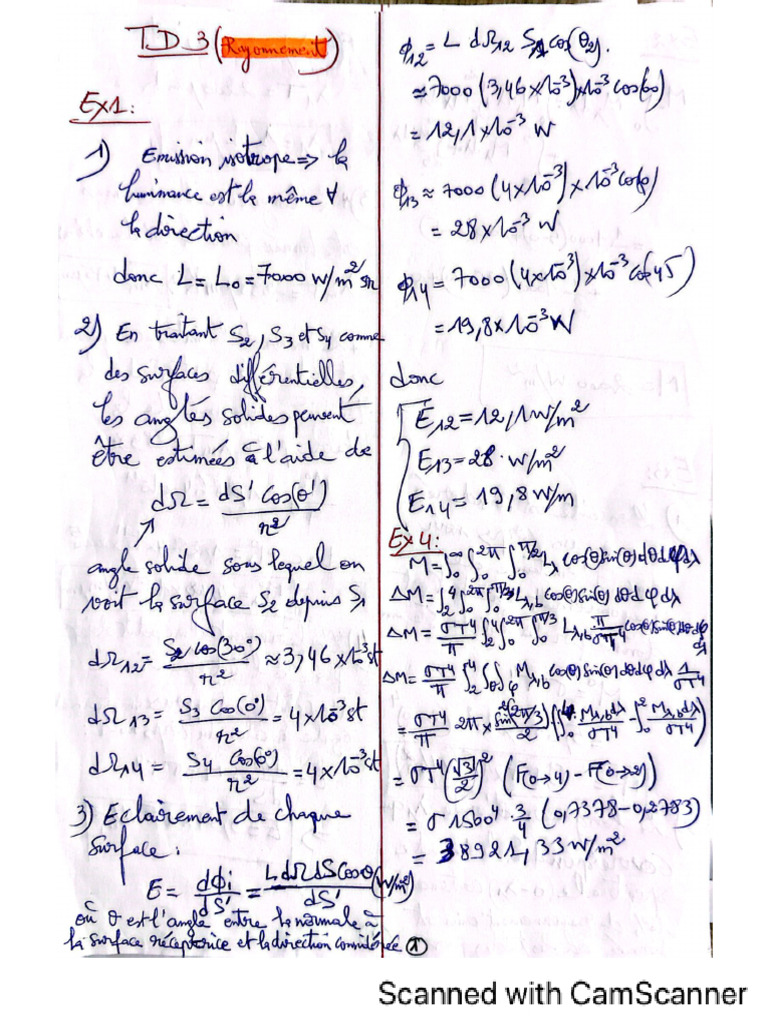 T.D 3 (Rayonnement)
Ex1:
1) Emission isotrope => la
luminance est la même ∀
la direction
donc L = L₀ = 7000 W/m² sr
2) En traitant S₂, S₃ et S₄ comme
des surfaces différentielles,
les angles solides peuvent
être estimées à l'aide de
dΩ = dS' cos(θ') / r²
angle solide sous lequel on
voit la surface S₂ depuis S₁
dΩ₁₂ = S₂ cos(30°) / r² ≈ 3,46 x 10⁻³ st
dΩ₁₃ = S₃ cos(0°) / r² = 4 x 10⁻³ st
dΩ₁₄ = S₄ cos(0°) / r² = 4 x 10⁻³ st
3) Eclairement de chaque
surface :
E = dΦi / dS' = L dΩ dS cos θ / dS' (W/m²)
où θ est l'angle entre la normale à
la surface réceptrice et la direction considérée ①
ϕ₁₂ = L dΩ₁₂ S₁ cos(θ₂).
≈ 7000 (3,46 x 10⁻³) x 10⁻³ cos(60)
= 12,1 x 10⁻³ W
ϕ₁₃ ≈ 7000 (4 x 10⁻³) x 10⁻³ cos(0)
= 28 x 10⁻³ W
ϕ₁₄ = 7000 (4 x 10⁻³) x 10⁻³ cos(45)
= 19,8 x 10⁻³ W
donc
E₁₂ = 12,1 W/m²
E₁₃ = 28 W/m²
E₁₄ = 19,8 W/m
Ex 4:
M = ∫₀^∞ ∫₀^2π ∫₀^π/2 Lλ cos(θ) sin(θ) dθ dφ dλ
ΔM = ∫₂⁴ ∫₀^2π ∫₀^π/3 Lλ,b cos(θ) sin(θ) dθ dφ dλ
ΔM = σT⁴/π ∫₂⁴ ∫₀^2π ∫₀^π/3 Lλ,b π/σT⁴ cos(θ) sin(θ) dθ dφ dλ
ΔM = σT⁴/π ∫₂⁴ ∫θ ∫φ Mλ,b cos(θ) sin(θ) dθ dφ dλ 1/σT⁴
= σT⁴/π 2π x sin²(2π/3)/2 (∫₀⁴ Mλ,b dλ/σT⁴ - ∫₀² Mλ,b dλ/σT⁴)
= σT⁴ (√3/2)² (F(0→4) - F(0→2))
= σ 1500⁴ · 3/4 (0,7378 - 0,2783)
= 38921,33 W/m²
Scanned with CamScanner